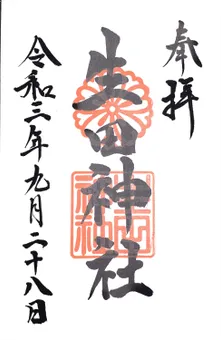 奉拝
生田神社
令和三年九月二十八日